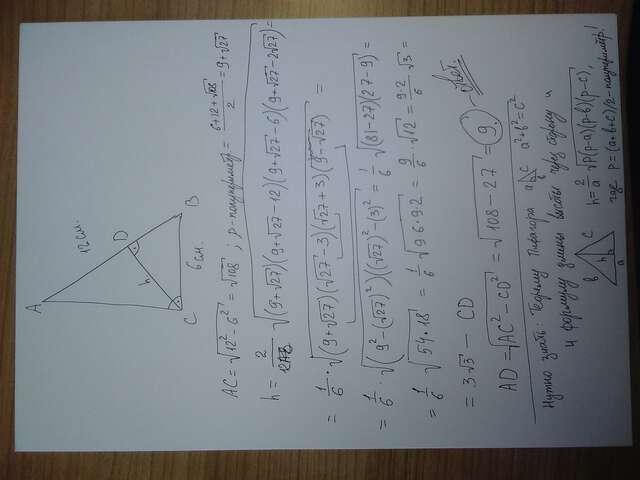 A
12 см.
D
B
h
6 см.
C
AC = √12² - 6² = √108 ; p - полупериметр = (6+12+√108)/2 = 9+√27
h = 2/12 √(9+√27)(9+√27-12)(9+√27-6)(9+√27-2√27) =
= 1/6 · √(9+√27)(√27-3)(√27+3)(9-√27) =
= 1/6 · √(9²-(√27)²)((√27)²-(3)²) = 1/6 √(81-27)(27-9) =
= 1/6 √54·18 = 1/6 √9·6·9·2 = 9/6 √12 = 9·2/6 √3 =
= 3√3 - CD
AD = √AC² - CD² = √108 - 27 = 9 - ответ.
Нужно знать: Теорему Пифагора a c b a²+b²=c²
и формулу длины высоты через сторону и
B C h a h = 2/a √p(p-a)(p-b)(p-c),
где p = (a+b+c)/2 - полупериметр!